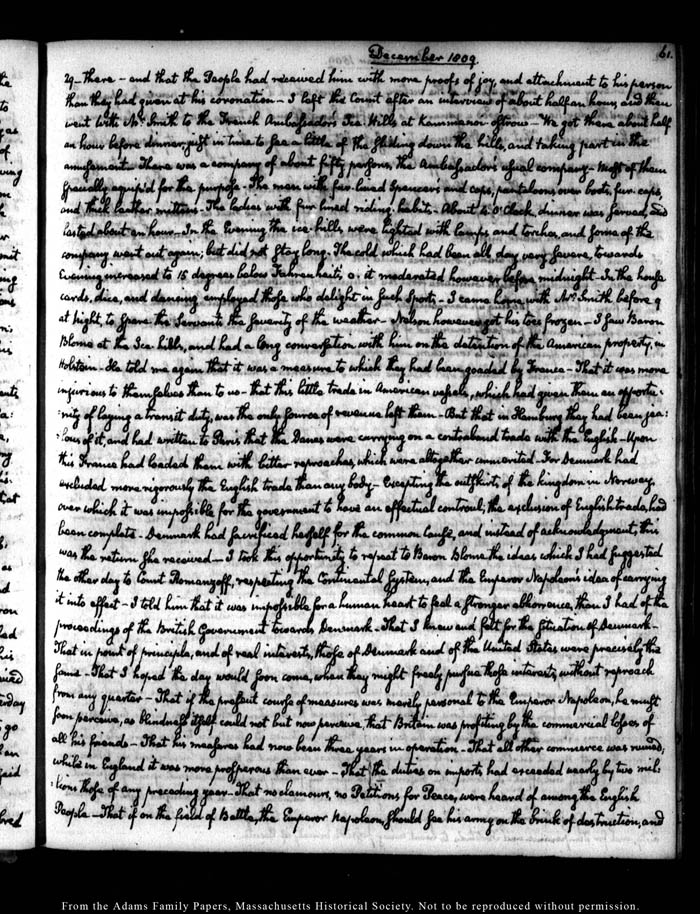 December 1809.
61.
29 - there - and that the People had received him with more proofs of joy, and attachment to his person
than they had given at his coronation - I left the Count after an interview of about half an hour, and then
went with Mr. Smith to the French Ambassador's Ice Hills at Kammenoi Ostrow - We got there about half
an hour before dinner, just in time to see a little of the sliding down the hills, and taking part in the
amusement - There was a company of about fifty persons, the Ambassador's usual company - Most of them
specially equip'd for the purpose - The men with fur-lined Spencers and caps, pantaloons over boots, fur-caps,
and thick leather mittens. The ladies with fur lined riding habits - About 4. O'Clock, dinner was served, and
lasted about an hour - In the Evening the ice-hills, were lighted with lamps and torches, and some of the
company went out again; but did not stay long. The cold which had been all day very severe, towards
Evening increased to 15 degrees below Fahrenheit's 0. it moderated however before midnight - In the house
cards, dice, and dancing employed those who delight in such sports - I came home with Mr. Smith before 9
at Night, to spare the Servants the severity of the weather - Nelson however got his toes frozen - I saw Baron
Blome at the Ice hills, and had a long conversation with him on the detention of the American property, in
Holstein - He told me again that it was a measure to which they had been goaded by France - That it was more
injurious to themselves than to us - that this little trade in American vessels, which had given them an opportu-
:nity of laying a transit duty, was the only source of revenue left them - But that in Hamburg they had been jea:
:lous of it, and had written to Paris that the Danes were carrying on a contraband trade with the English - Upon
this France had loaded them with bitter reproaches, which were altogether unmerited. For Denmark had
excluded more rigorously the English trade than any body - Excepting the outskirts, of the kingdom in Norway,
over which it was impossible for the government to have an effectual controul; the exclusion of English trade, had
been complete - Denmark had sacrificed herself for the common Cause, and instead of acknowledgment, this
was the return she received - I took this opportunity to repeat to Baron Blome the ideas which I had suggested
the other day to Count Romanzoff, respecting the Continental System, and the Emperor Napoleon's idea of carrying
it into effect - I told him that it was impossible for a human heart to feel a stronger abhorrence, than I had of the
proceedings of the British Government towards Denmark - That I knew and felt for the situation of Denmark -
That in point of principle, and of real interests, those of Denmark and of the United States were precisely the
same - That I hoped the day would soon come, when they might freely pursue those interests, without reproach
from any quarter - That if the present course of measures was merely personal to the Emperor Napoleon, he must
soon perceive, as blindness itself could not but now perceive, that Britain was profiting by the commercial losses of
all his friends - That his measures had now been three years in operation - That all other commerce was ruined,
while in England it was more prosperous than ever - That the duties on imports had exceeded nearly by two mil:
:lions those of any preceding year - That no clamours, no Petitions for Peace, were heard of among the English
People - That if on the field of Battle, the Emperor Napoleon, should see his army on the brink of destruction, and
From the Adams Family Papers, Massachusetts Historical Society. Not to be reproduced without permission.